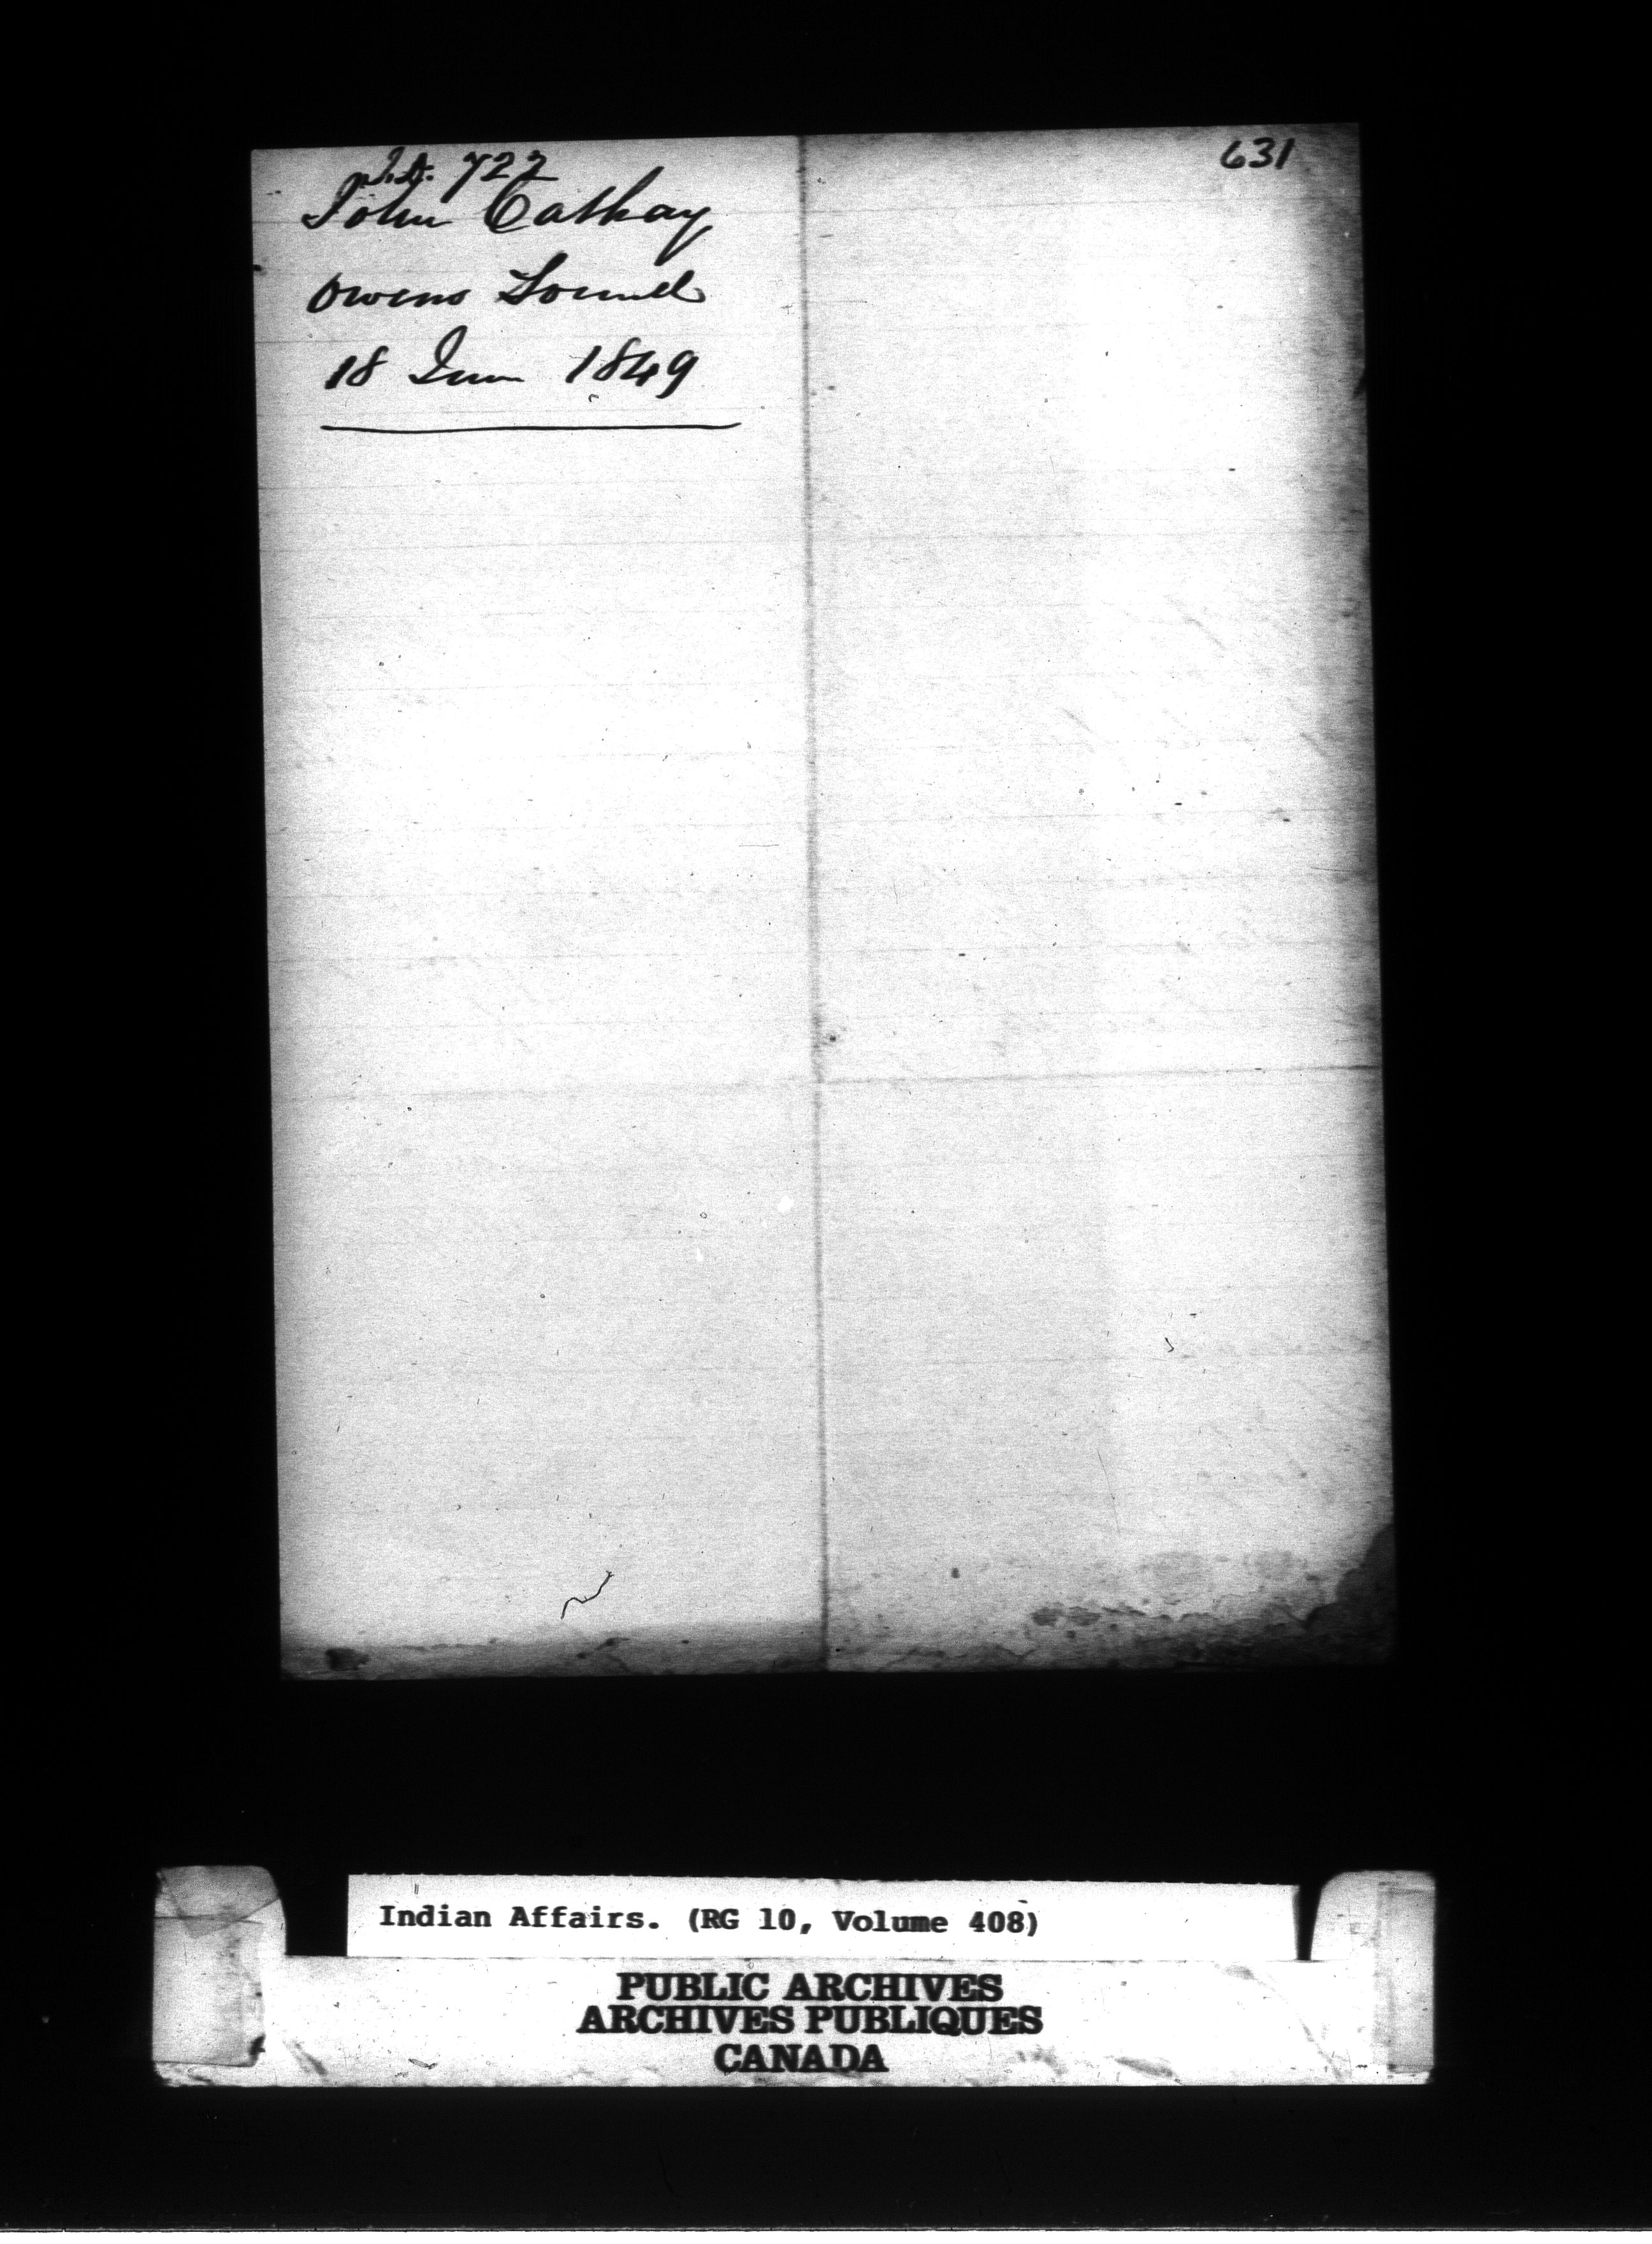 631
I.A. 722
John Cathay
Owens Sound
18 June 1849
Indian Affairs. (RG 10, Volume 408)
PUBLIC ARCHIVES
ARCHIVES PUBLIQUES
CANADA